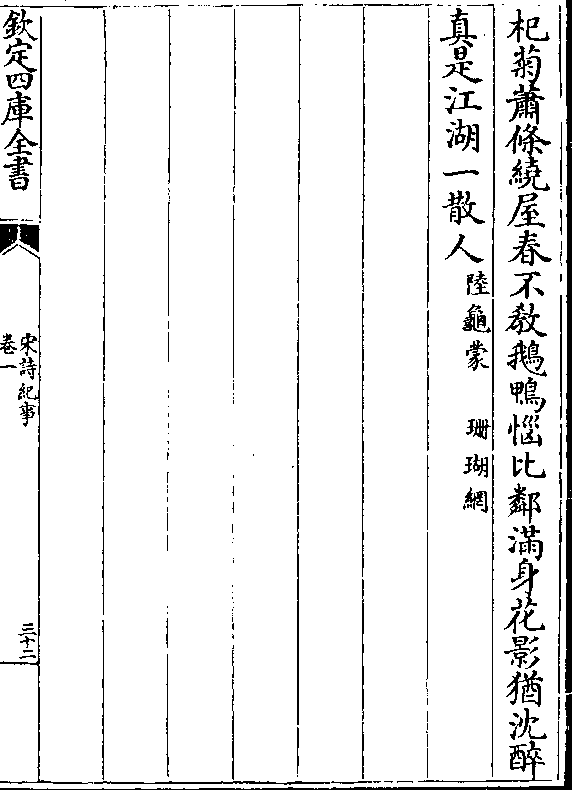 杞菊蕭條繞屋春不教鵝鴨惱比鄰滿身花影猶沈醉
真是江湖一散人陸龜蒙 珊瑚網
欽定四庫全書
宋詩紀事
卷一
三十二